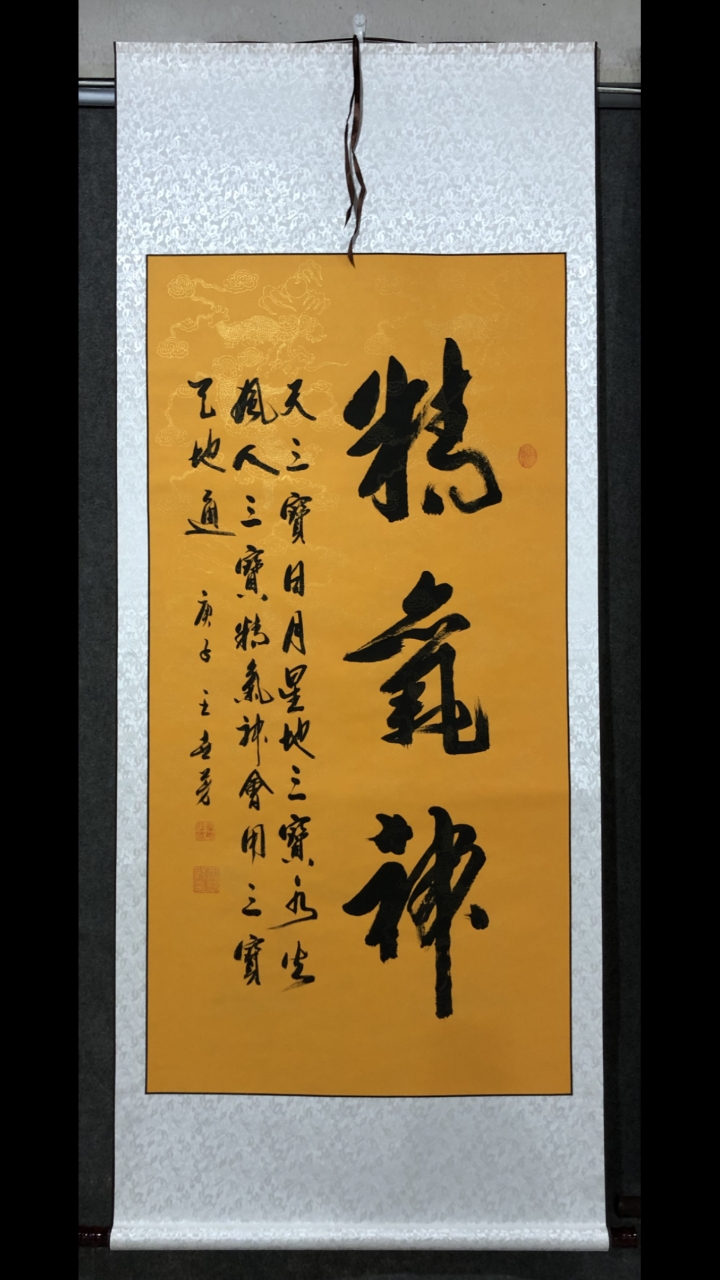 精氣神
天三寶日月星地三寶水火
風人三寶精氣神會用三寶
天地通 庚子 王